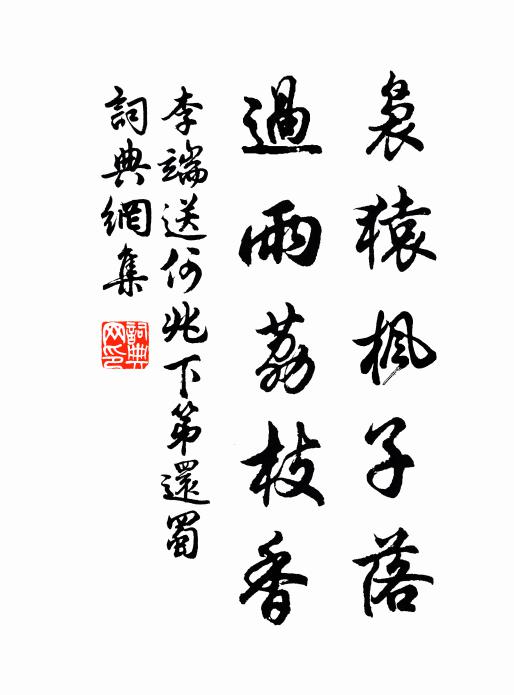 裊猿楓子落
過雨荔枝香
李端送何兆下第還蜀
詞典網集
詞典
网印